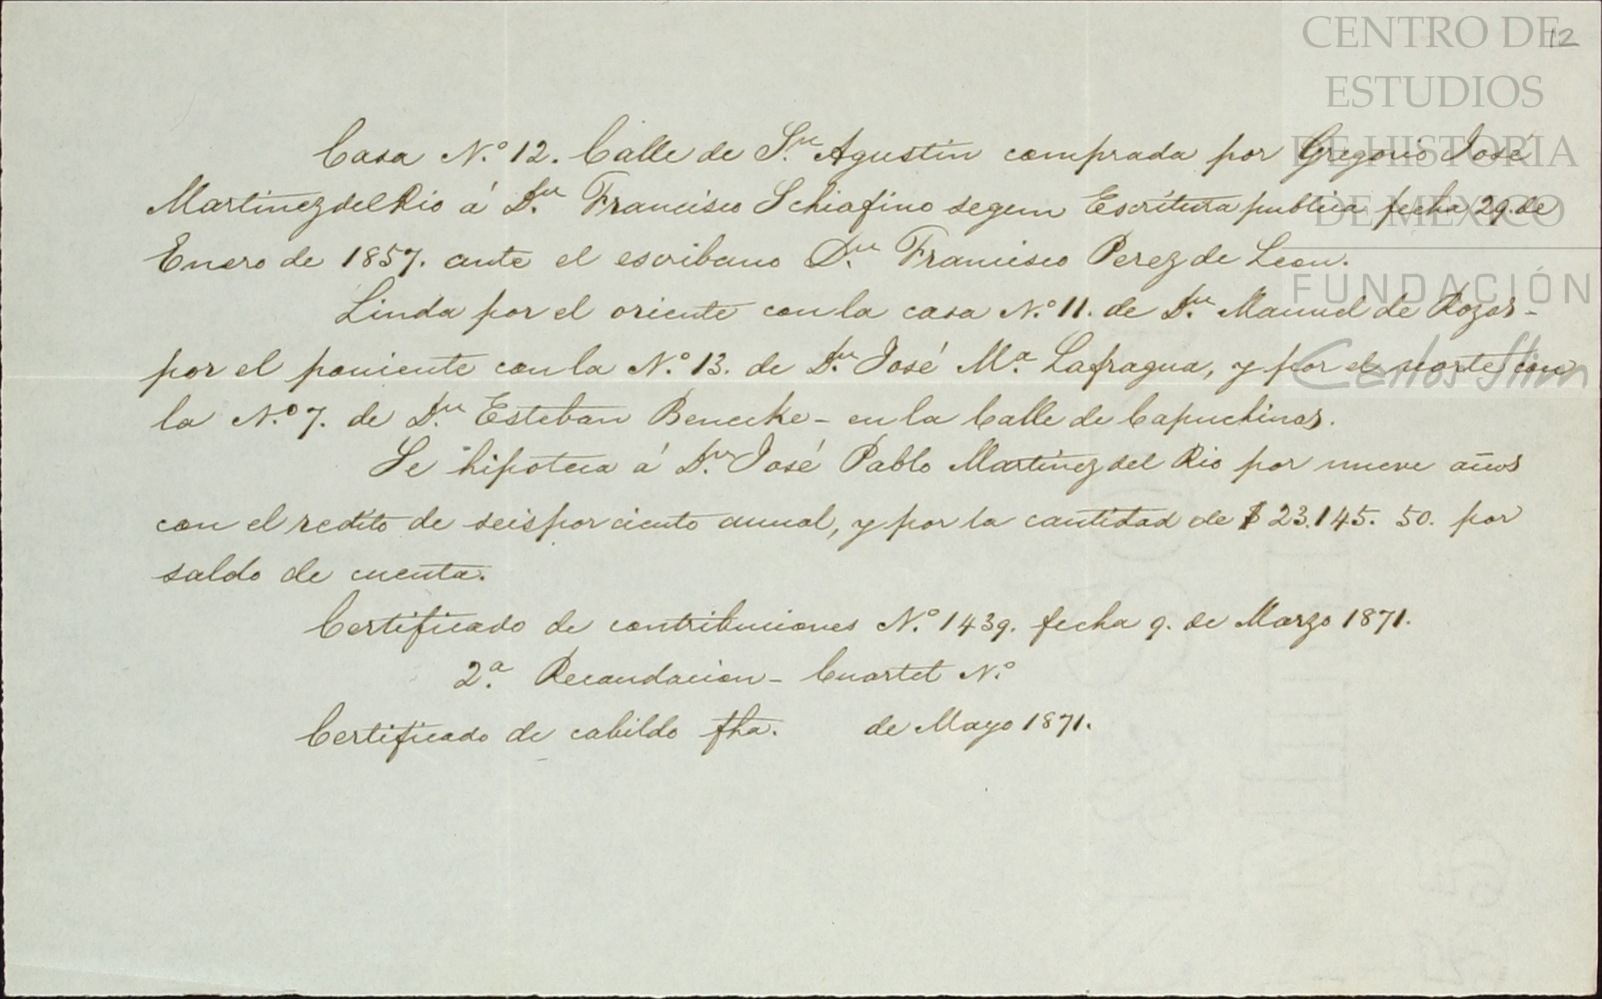 CENTRO DE
ESTUDIOS
DE HISTORIA
DE MÉXICO
FUNDACIÓN
Carlos Slim
12
Casa N.º 12. Calle de S.n Agustin comprada por Gregorio José
Martinez del Rio á D.n Francisco Schiafino segun Escritura publica fecha 29. de
Enero de 1857. ante el escribano D.n Francisco Perez de Leon.
Linda por el oriente con la casa N.º 11. de D.n Manuel de Rozas -
por el poniente con la N.º 13. de D.n José M.a Lafragua, y por el norte con
la N.º 7. de D.n Esteban Benecke - en la Calle de Capuchinas.
Se hipoteca á D.n José Pablo Martinez del Rio por nueve años
con el redito de seis por ciento anual, y por la cantidad de $ 23.145. 50. por
saldo de cuenta.
Certificado de contribuciones N.º 1439. fecha 9. de Marzo 1871.
2.a Recaudacion - Cuartel N.º
Certificado de cabildo fha. de Mayo 1871.